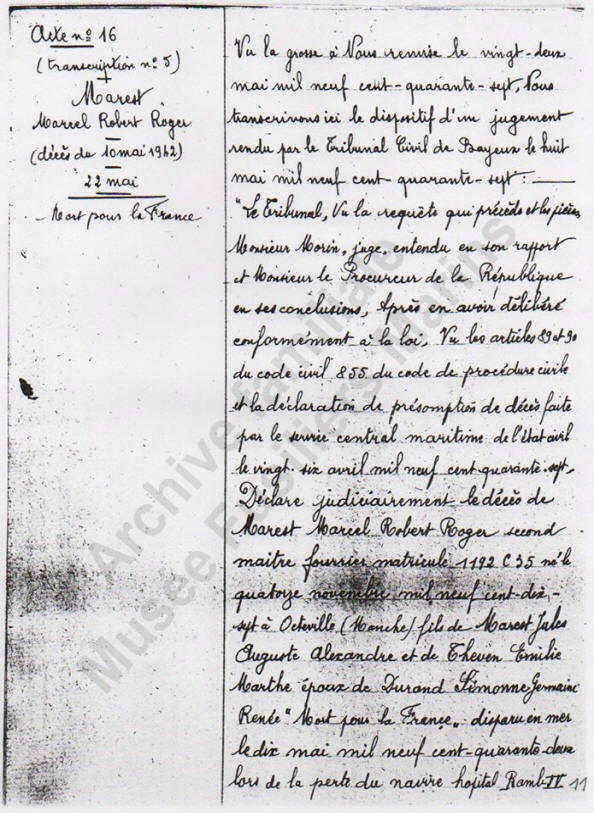 Acte nº 16
(transcription nº 5)
Marest
Marcel Robert Roger
(décès du 10 mai 1942)
22 mai
Mort pour la France
Vu la grosse à Nous remise le vingt-deux
mai mil neuf cent-quarante-sept, Nous
transcrivons ici le dispositif d'un jugement
rendu par le Tribunal Civil de Bayeux le huit
mai mil neuf cent-quarante-sept :
"Le Tribunal, Vu la requête qui précède et les pièces,
Monsieur Morin, juge, entendu en son rapport
et Monsieur le Procureur de la République
en ses conclusions, Après en avoir délibéré
conformément à la loi, Vu les articles 89 et 90
du code civil 855 du code de procédure civile
et la déclaration de présomption de décès faite
par le service central maritime de l'état civil
le vingt-six avril mil neuf cent-quarante-sept,
Déclare judiciairement le décès de
Marest Marcel Robert Roger second
maître fourrier matricule 1192 C 35 né le
quatorze novembre mil neuf cent-dix-
sept à Octeville (Manche) fils de Marest Jules
Auguste Alexandre et de Theven Emilie
Marthe époux de Durand Simonne Germaine
Renée "Mort pour la France" disparu en mer
le dix mai mil neuf cent-quarante-deux
lors de la perte du navire hôpital Ramb-IV 11
Archive familiale
Musée Fusiliers Marins